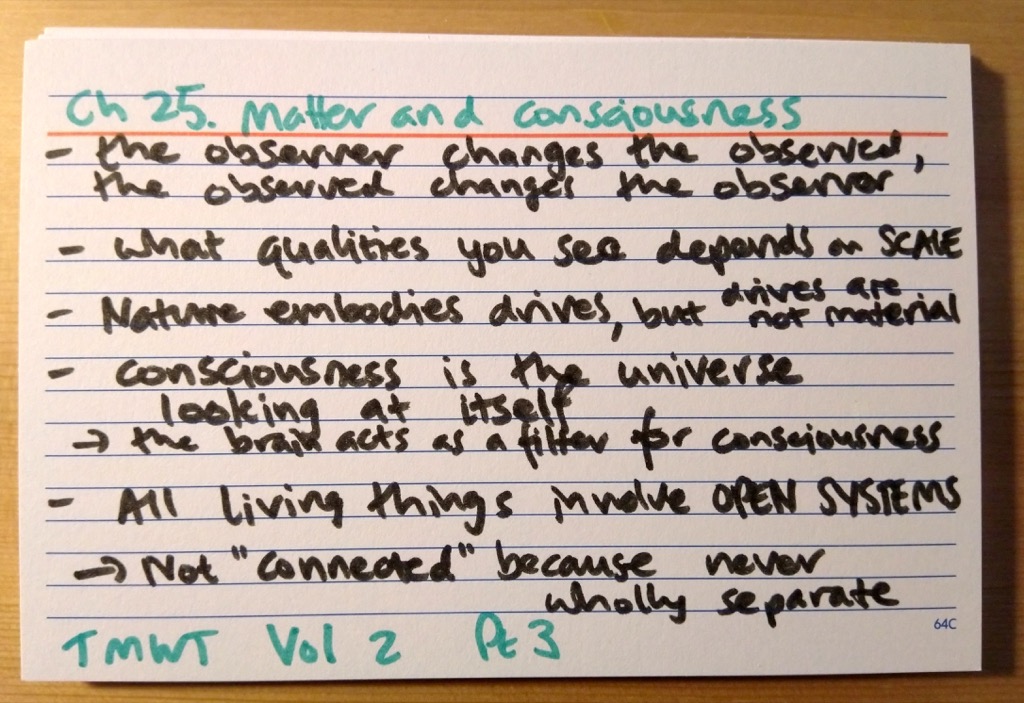 Ch 25. Matter and consciousness
- the observer changes the observed,
the observed changes the observor
- what qualities you see depends on SCALE
- Nature embodies drives, but drives are
not material
- consciousness is the universe
looking at itself
→ the brain acts as a filter for consciousness
- All living things involve OPEN SYSTEMS
→ Not "connected" because never
wholly separate
64C
TMWT Vol 2 Pt 3